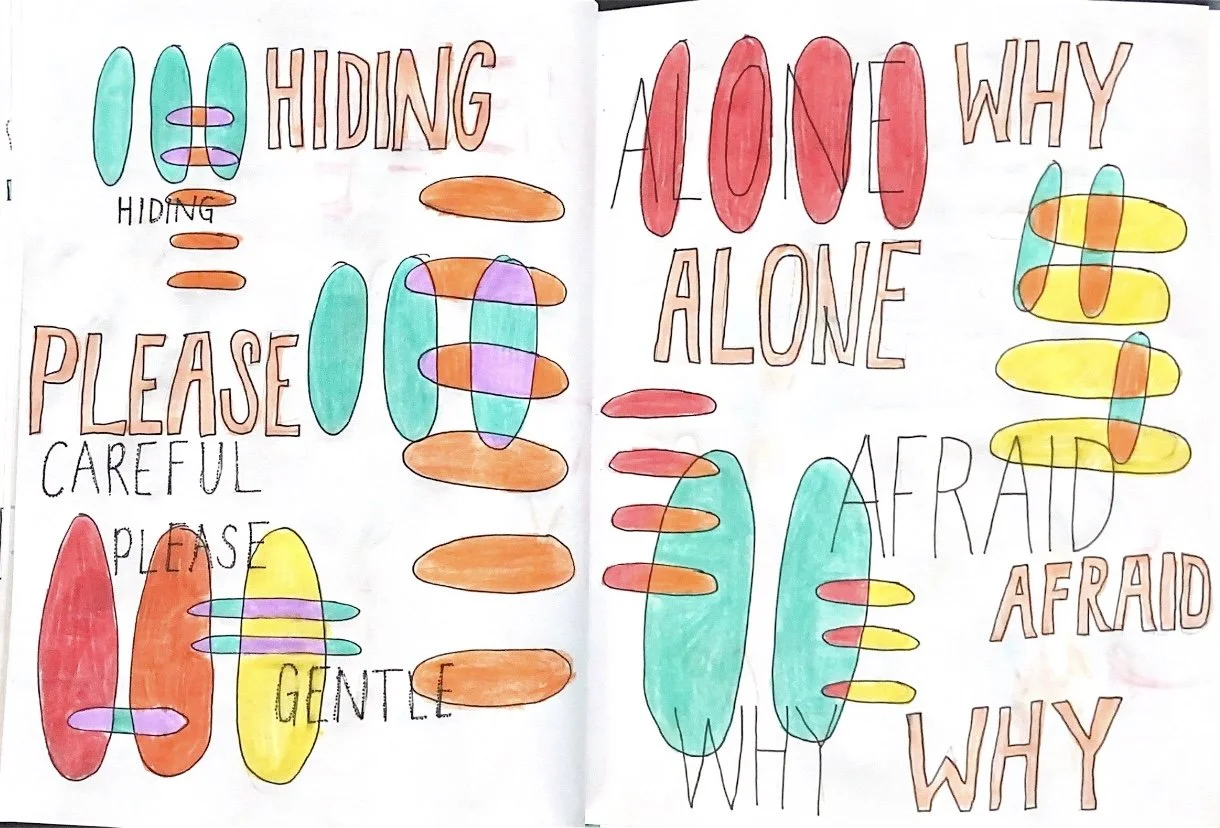 HIDING
HIDING
PLEASE
CAREFUL
PLEASE
GENTLE
ALONE
WHY
ALONE
AFRAID
AFRAID
WHY
WHY